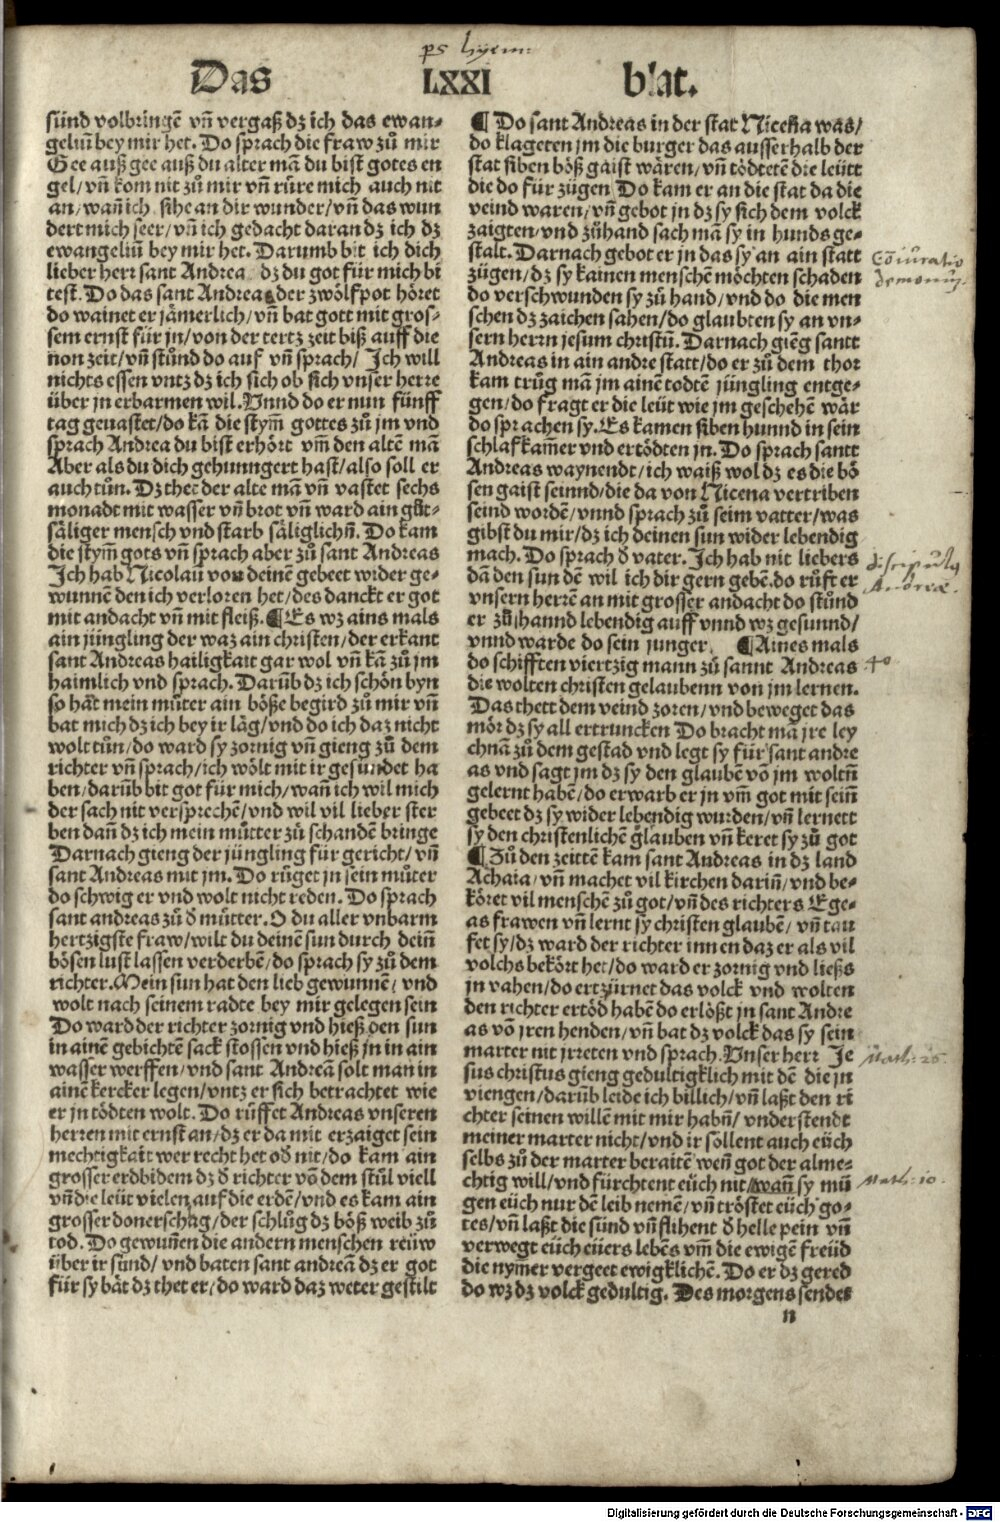 ps hyem:
Das LXXI blat.
sünd volbringē vñ vergaß dz ich das ewan-
geliū bey mir het. Do sprach die fraw zů mir
Gee auß gee auß du alter mā du bist gotes en
gel/ vñ kom nit zů mir vñ rüre mich auch nit
an/ wañ ich sihe an dir wunder/ vñ das wun
dert mich seer/ vñ ich gedacht daran dz ich dz
ewangeliū bey mir het. Darumb bit ich dich
lieber herr sant Andrea dz du got für mich bi
test. Do das sant Andreas der zwölfpot höret
do wainet er jämerlich/ vñ bat gott mit gros-
sem ernst für jn/ von der tertz zeit biß auff die
non zeit/ vñ stůnd do auf vñ sprach/ Ich will
nichts essen vntz dz ich sich ob sich vnser herre
über jn erbarmen wil. Vnnd do er nun fünff
tag geuastet/ do kā die stym̄ gottes zů jm vnd
sprach Andrea du bist erhört vm̄ den altē mā
Aber als du dich gehunngert hast/ also soll er
auch tůn. Dz thet der alte mā vñ vastet sechs
monadt mit wasser vñ brot vñ ward ain gůt-
säliger mensch vnd starb säliglichñ. Do kam
die stym̄ gots vñ sprach aber zů sant Andreas
Ich hab Nicolaū von deinē gebeet wider ge-
wunnē den ich verloren het/ des danckt er got
mit andacht vñ mit fleiß. ¶ Es wz ains mals
ain jüngling der waz ain christen/ der erkant
sant Andreas hailigkait gar wol vñ kā zů jm
haimlich vnd sprach. Darūb dz ich schön byn
so hät mein můter ain böße begird zů mir vñ
bat mich dz ich bey ir läg/ vnd do ich daz nicht
wolt tůn/ do ward sy zornig vñ gieng zů dem
richter vñ sprach/ ich wölt mit ir gesündet ha
ben/ darūb bit got für mich/ wañ ich wil mich
der sach nit versprechē/ vnd wil vil lieber ster
ben dañ dz ich mein můtter zů schandē bringe
Darnach gieng der jüngling für gericht/ vñ
sant Andreas mit jm. Do růget jn sein můter
do schwig er vnd wolt nicht reden. Do sprach
sant andreas zů d̄ můtter. O du aller vnbarm
hertzigste fraw/ wilt du deinē sun durch deiñ
bösen lust lassen verderbē/ do sprach sy zů dem
richter. Mein sun hat den lieb gewunnē/ vnd
wolt nach seinem radte bey mir gelegen sein
Do ward der richter zornig vnd hieß den sun
in ainē gebichtē sack stossen vnd hieß jn in ain
wasser werffen/ vnd sant Andreā solt man in
ainē kercker legen/ vntz er sich betrachtet wie
er jn tödten wolt. Do růffet Andreas vnseren
herren mit ernst an/ dz er da mit erzaiget sein
mechtigkait wer recht het od̄ nit/ do kam ain
grosser erdbidem dz d̄ richter vō dem stůl viell
vñ die leüt vielen auf die erdē/ vnd es kam ain
grosser donerschlag/ der schlůg dz böß weib zů
tod. Do gewuñen die andern menschen reüw
über ir sünd/ vnd baten sant andreā dz er got
für sy bät dz thet er/ do ward daz weter gestilt
¶ Do sant Andreas in der stat Nicena was/
do klageten jm die burger das ausserhalb der
stat siben böß gaist wären/ vñ tödtetē die leütt
die do für zügen Do kam er an die stat da die
veind waren/ vñ gebot jn dz sy sich dem volck
zaigten/ vnd zůhand sach mā sy in hunds ge-
stalt. Darnach gebot er jn das sy an ain statt
zügen/ dz sy kainen menschē möchten schaden
do verschwunden sy zů hand/ vnd do die men
schen dz zaichen sahen/ do glaubten sy an vn-
sern herrn jesum christū. Darnach giēg santt
Andreas in ain andre statt/ do er zů dem thor
kam trůg mā jm ainē todtē jüngling entge-
gen/ do fragt er die leüt wie jm geschehē wär
do sprachen sy. Es kamen siben hunnd in sein
schlafkam̄er vnd ertödten jn. Do sprach santt
Andreas waynendt/ ich waiß wol dz es die bö
sen gaist seinnd/ die da von Nicena vertriben
seind wordē/ vnnd sprach zů seim vatter/ was
gibst du mir/ dz ich deinen sun wider lebendig
mach. Do sprach d̄ vater. Ich hab nit liebers
dā den sun dē wil ich dir gern gebē. do růft er
vnsern herrē an mit grosser andacht do stůnd
er zů hannd lebendig auff vnnd wz gesunnd/
vnnd warde do sein junger. ¶ Aines mals
do schifften viertzig mann zů sannt Andreas
die wolten christen gelaubenn von jm lernen.
Das thett dem veind zoren/ vnd beweget das
mör dz sy all ertruncken Do bracht mā jre ley
chnā zů dem gestad vnd legt sy für sant andre
as vnd sagt jm dz sy den glaubē vō jm woltñ
gelernt habē/ do erwarb er jn vm̄ got mit seiñ
gebeet dz sy wider lebendig wurden/ vñ lernett
sy den christenlichē glauben vñ keret sy zů got
¶ Zů den zeittē kam sant Andreas in dz land
Achaia/ vñ machet vil kirchen dariñ/ vnd be-
köret vil menschē zů got/ vñ des richters Ege-
as frawen vñ lernt sy christen glaubē/ vñ tau
fet sy/ dz ward der richter innen daz er als vil
volchs bekört het/ do ward er zornig vnd ließs
jn vahen/ do ertzürnet das volck vnd wolten
den richter ertöd habē do erlößt jn sant Andre
as vō jren henden/ vñ bat dz volck das sy sein
marter nit jrreten vnd sprach. Vnser herr Je
sus christus gieng gedultigklich mit dē die jn
viengen/ darūb leide ich billich/ vñ laßt den ri
chter seinen willē mit mir habñ/ vnderstendt
meiner marter nicht/ vnd ir söllent auch eüch
selbs zů der marter beraitē weñ got der alme-
chtig will/ vnd fürchtent eüch nit/ wañ sy mü
gen eüch nur dē leib nemē/ vñ tröstet eüch go-
tes/ vñ laßt die sünd vñ flihent d̄ helle pein vñ
verwegt eüch eüers lebēs vm̄ die ewigē freüd
die nym̄er vergeet ewigklichē. Do er dz gered
do wz dz volck gedultig. Des morgens sendet
n
Cōiuratio
demonuz.
discipulus
Andreae.
40
Math: 26
Math: 10.
Digitalisierung gefördert durch die Deutsche Forschungsgemeinschaft - DFG